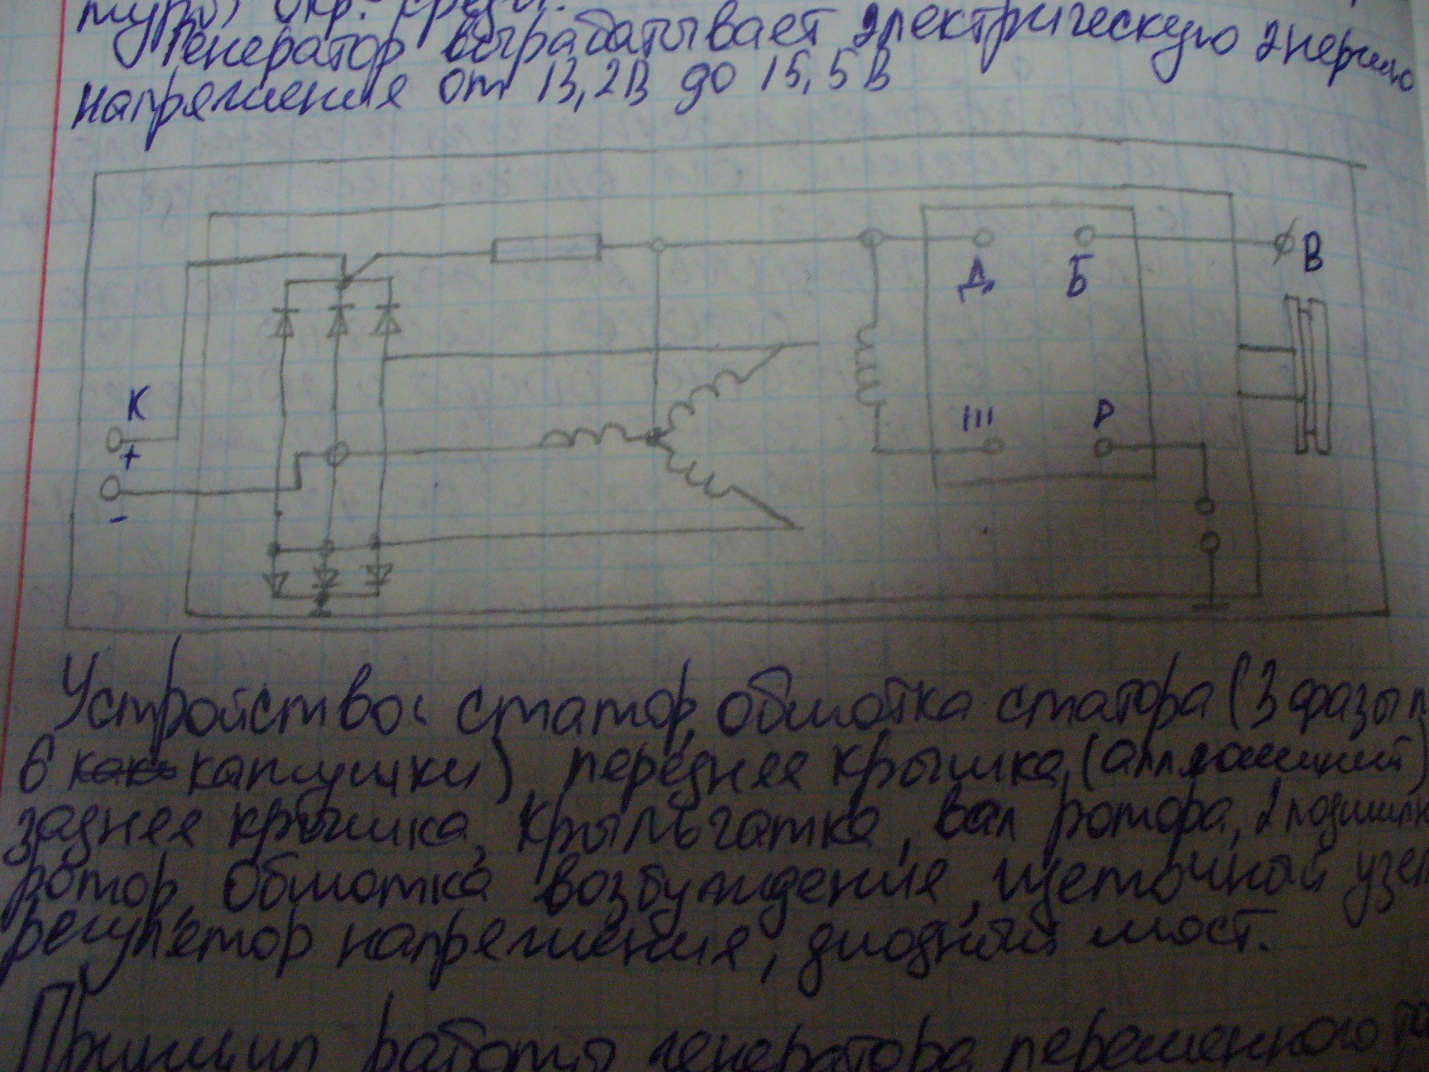 туры окр. среды.
Генератор вырабатывает электрическую энергию
напряжения от 13,2В до 15,5В
Д Б В
К
+
-
Ш Р
Устройство: статор, обмотка статора (3 фазы п
6 катушки), передняя крышка, (аллюминий)
задняя крышка, крыльчатка, вал ротора, 2 подшипн
ротор, обмотка возбуждения, щеточный узел
регулятор напряжения, диодный мост.
Принцип работы генератора переменного то